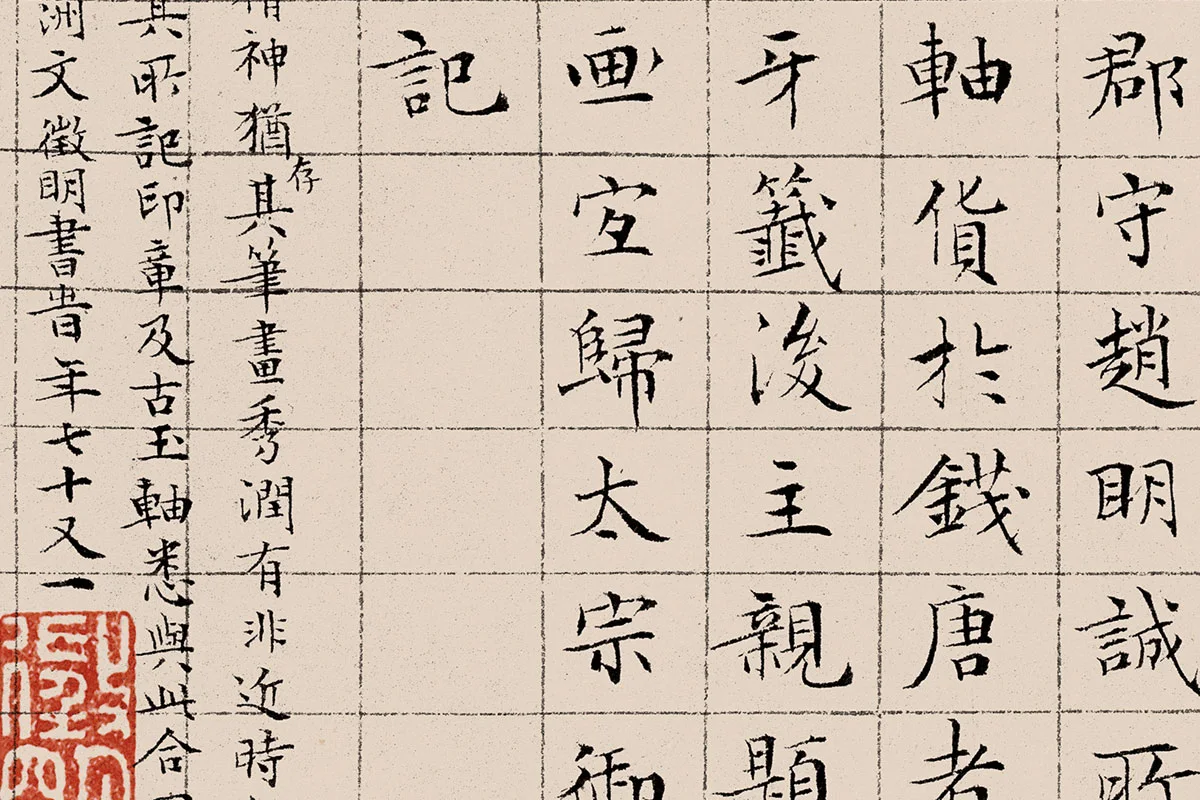 郡守趙明誠所
軸貨於錢唐者
牙籤後主親題
画宜歸太宗御
記
神猶存其筆畫秀潤有非近時
其所記印章及古玉軸悉與此合
洲文徵明書旹年七十又一
徵明